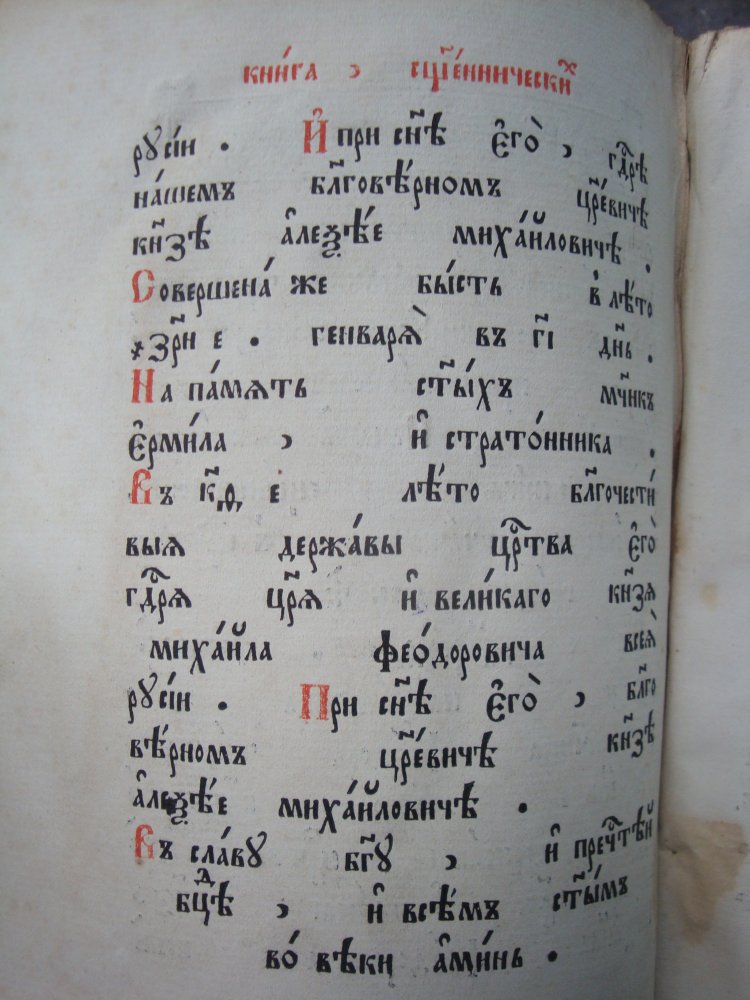 кни́га , сщ҃е́нническиⷯ
рꙋсі́и . И҆ при сн҃ѣ є҆гѡ̀ , гдⷭ҇рѣ
на́шемъ бл҃говѣ́рномъ цр҃е́вичѣ
кн҃зѣ а҆леѯѣ́е миха́йловичѣ .
Совершена́ же бы́сть в҆ лѣ́то
҂зрн҃ е . генварѧ̀ въ г҃і дн҃ь .
На па́мѧть ст҃ы́хъ мч҃нкъ
є҆рми́ла , и҆ страто́нника .
Въ к҃ѳ е лѣ́то бл҃гочести́
выѧ держа́вы црⷭ҇тва є҆гѡ̀
гдⷭ҇рѧ цр҃ѧ и҆ вели́каго кн҃зѧ
миха́йла ѳео́доровича всеѧ̀
рꙋсі́и . При сн҃ѣ є҆гѡ̀ , бл҃го
вѣ́рномъ цр҃е́вичѣ кн҃зѣ
а҆леѯѣ́е миха́йловичѣ .
Въ сла́вꙋ бг҃ꙋ , и҆ преч҇тѣй
бцⷣѣ , и҆ всѣ́мъ ст҃ы́мъ
во́ вѣки а҆ми́нь .